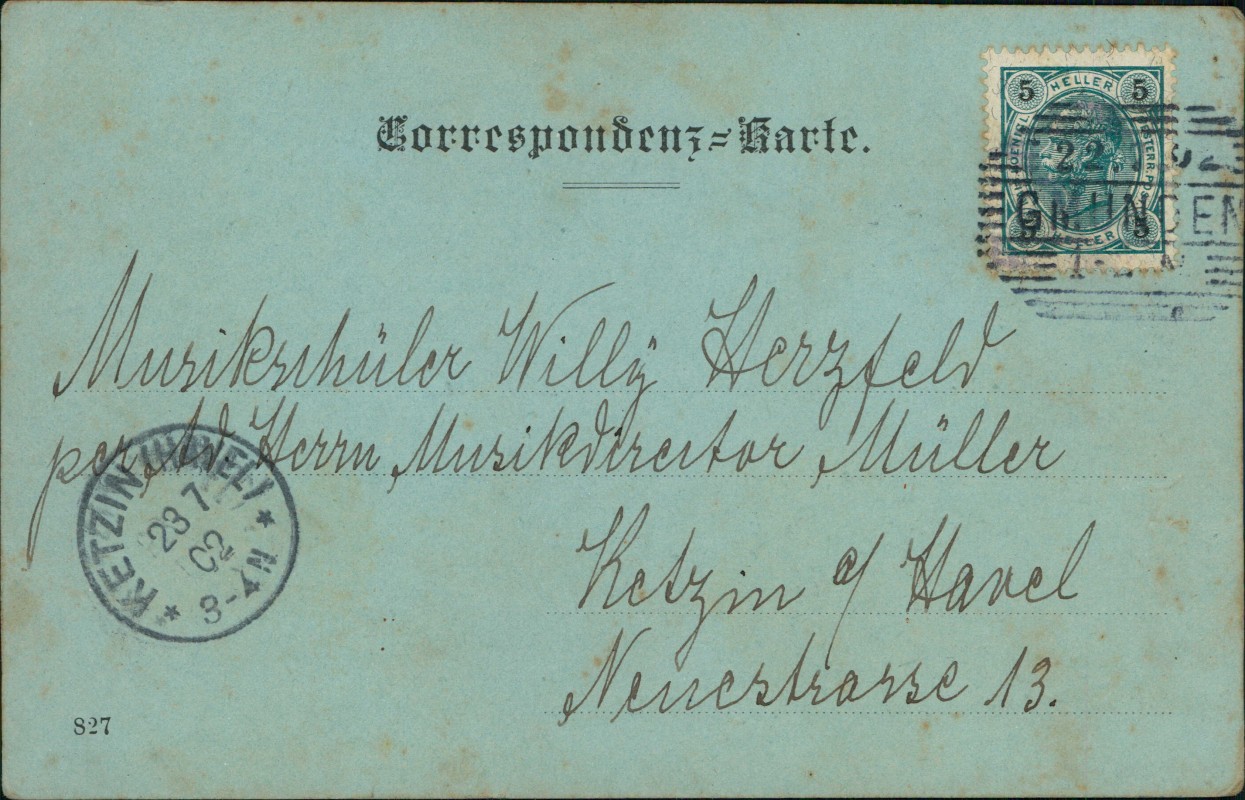 Correspondenz-Karte.
5 HELLER 5
22.
GMUNDEN
Musikschüler Willÿ Herzfeld
per Ad. Herrn Musikdirector Müller
Ketzin a/ Havel
Neuestrasse 13.
* KETZIN (HAVEL) *
23 7
02
3-4N
827